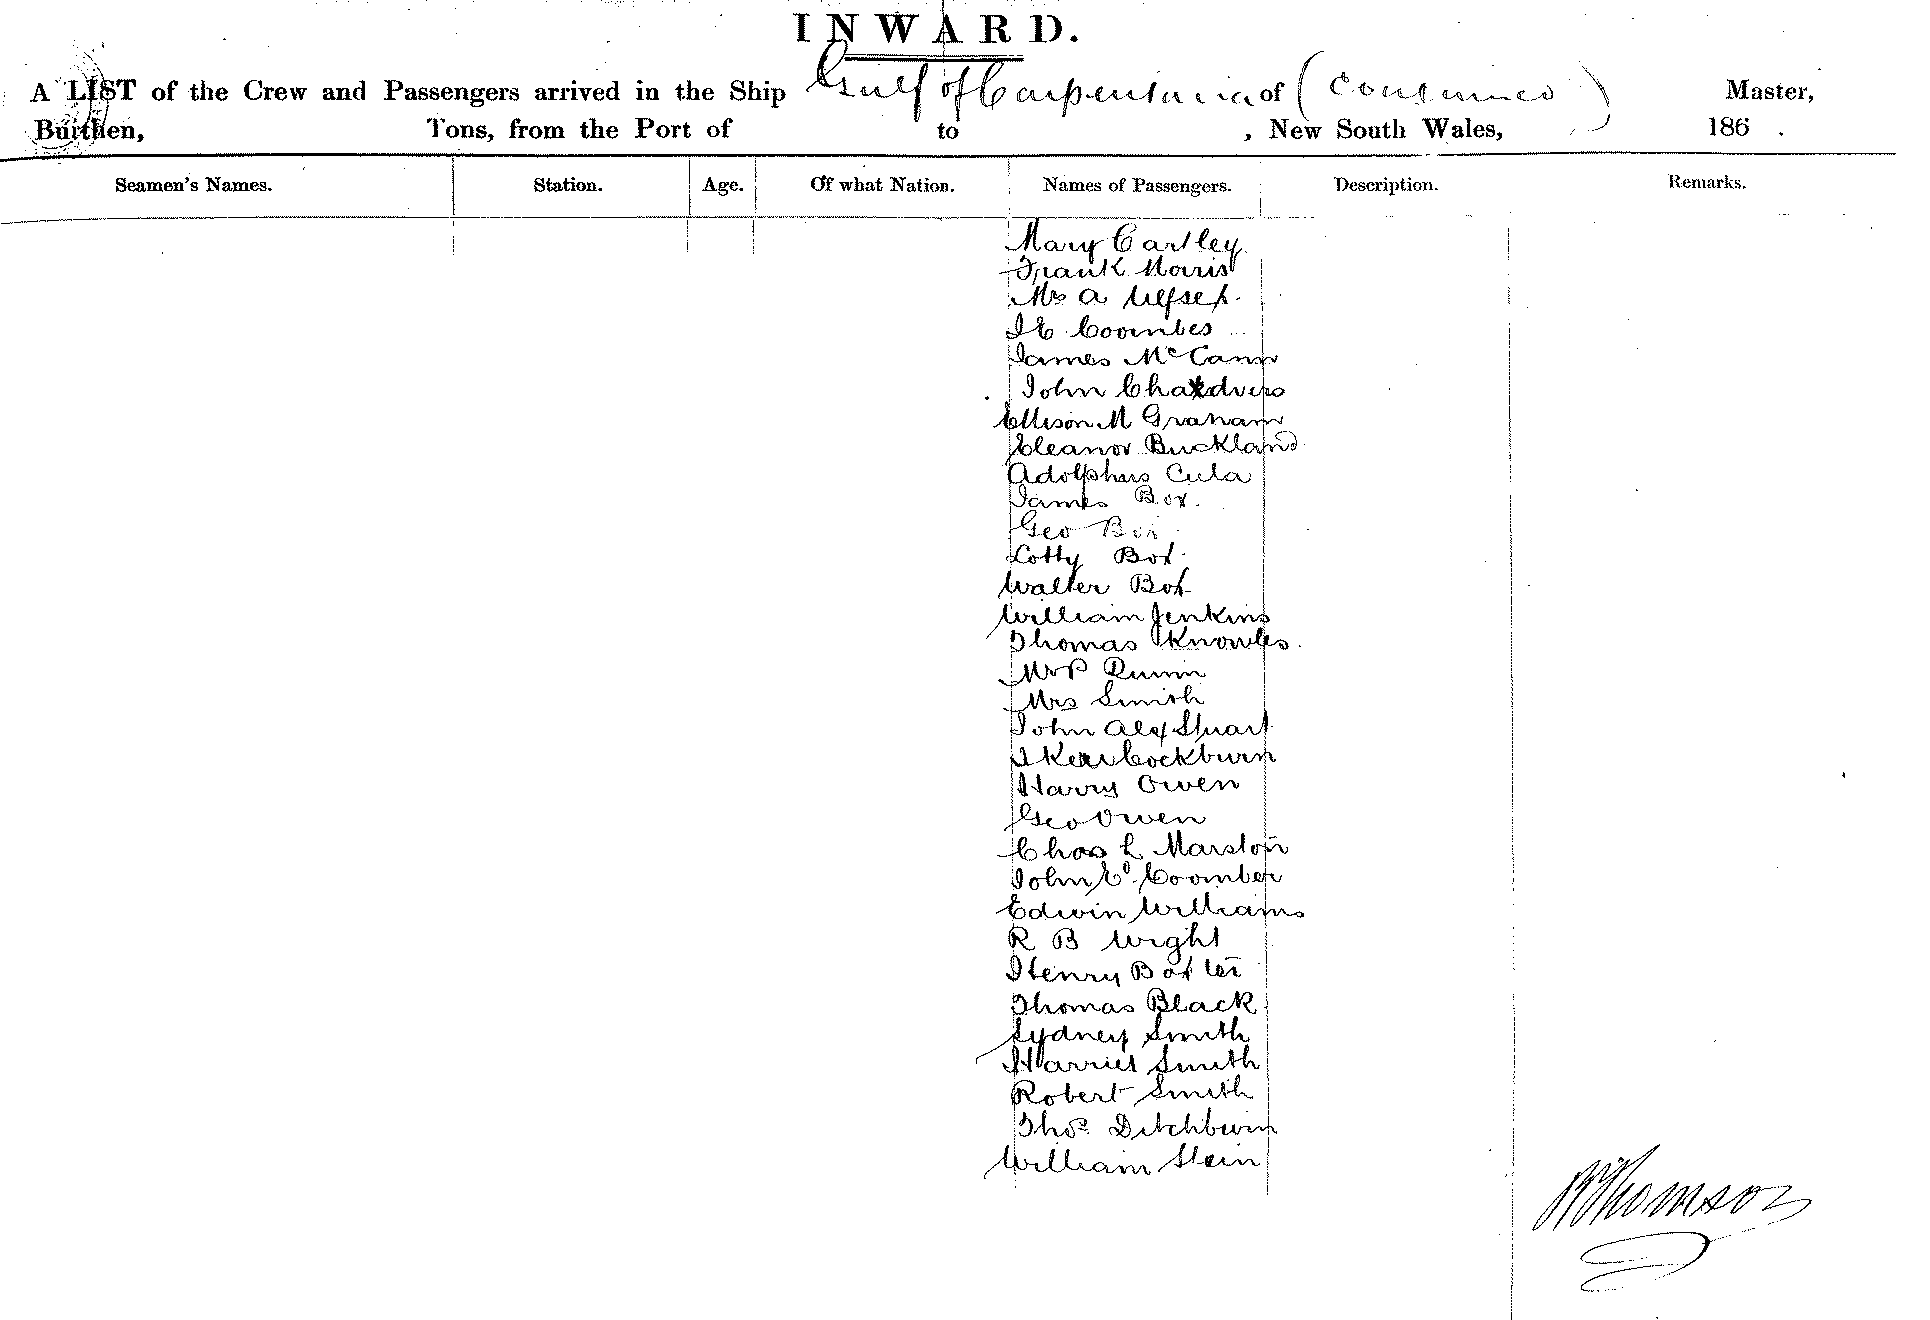 INWARD.
A LIST of the Crew and Passengers arrived in the Ship Gulf of Carpentaria of (Continued) Master,
Burthen, Tons, from the Port of to , New South Wales, 186 .
Seamen's Names. Station. Age. Of what Nation. Names of Passengers. Description. Remarks.
Mary Cartley
Frank Morris
Mr A
J E Coombes
James McCann
John
Ellison M Graham
Eleanor Buckland
Adolphus Cula
James Box.
Geo Box
Lotty Box
Walter Box
William Jenkins
Thomas Knowles.
Mr P Quinn
Mrs Smith
John Alex Stuart
J Kerr Cockburn
Harry Owen
Geo Owen
Chas L Marston
John E Coomber
Edwin Williams
R B Wight
Henry Baxter
Thomas Black
Sydney Smith
Harriet Smith
Robert Smith
Thos Ditchburn
William Stein
Thomson